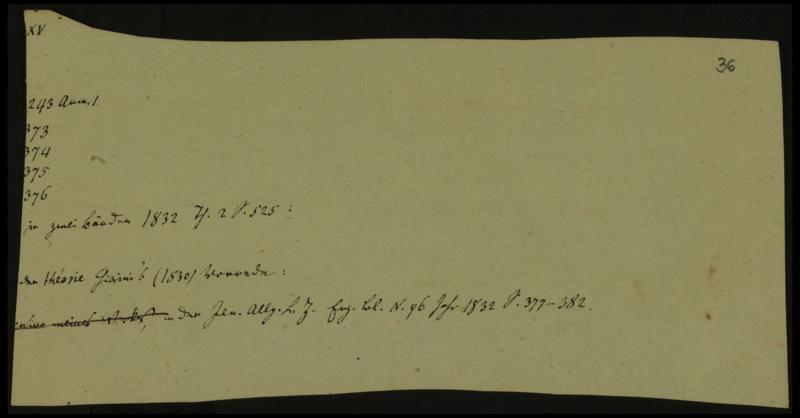 XV
36
243 Anm. 1.
373
374
375
376
in zwei Bänden 1832 Th. 2 S. 525 :
den théorie (1830) Vorrede :
in den Jen. Allg. L. Z. Erg. Bl. N. 96 Jahr 1832 S. 377–382.